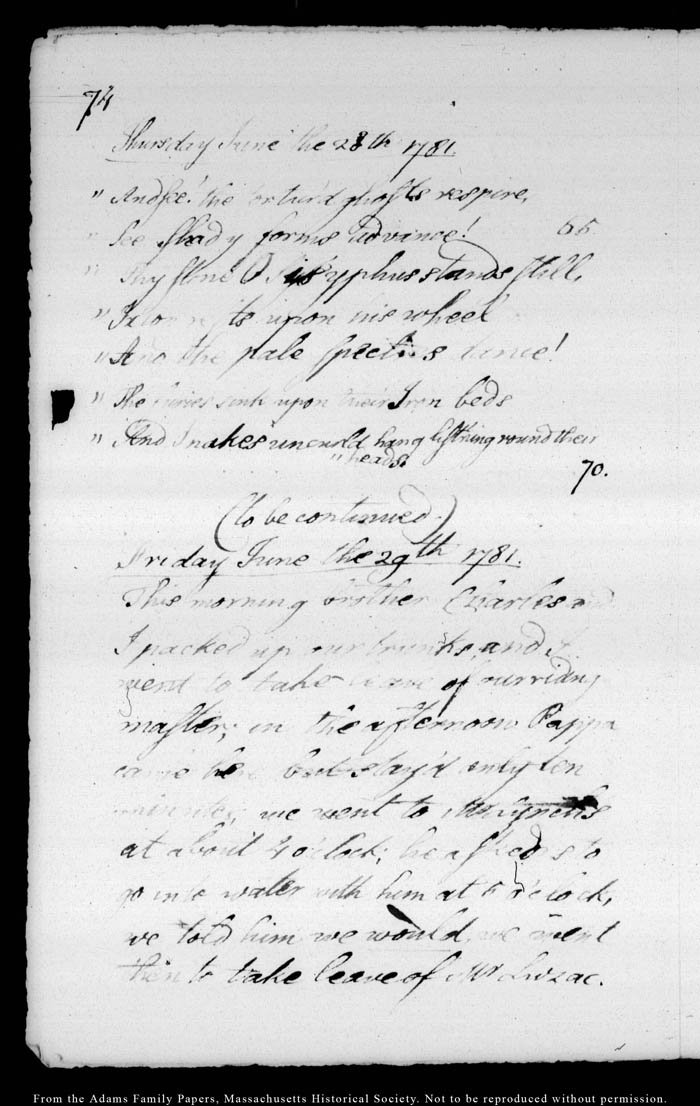 74
Thursday June the 28th 1781.
" And see! the tortur'd ghosts respire,
" See shady forms advance! 65
" Thy stone O Sysyphus stands still,
" Ixion rests upon his wheel
" And the pale spectres dance!
" The furies sink upon their Iron beds
" And Snakes uncurld hang listning round their
" heads. 70.
(to be continued.)
Friday June the 29th 1781.
This morning brother Charles and
I packed up our trunks, and I
went to take leave of our riding
master; in the afternoon Pappa
came here but stay'd only ten
minutes, we went to
at about 4 o'clock; he asked us to
go into water with him at 6 o'clock,
we told him we would, we went
then to take leave of Mr Luzac.
From the Adams Family Papers, Massachusetts Historical Society. Not to be reproduced without permission.